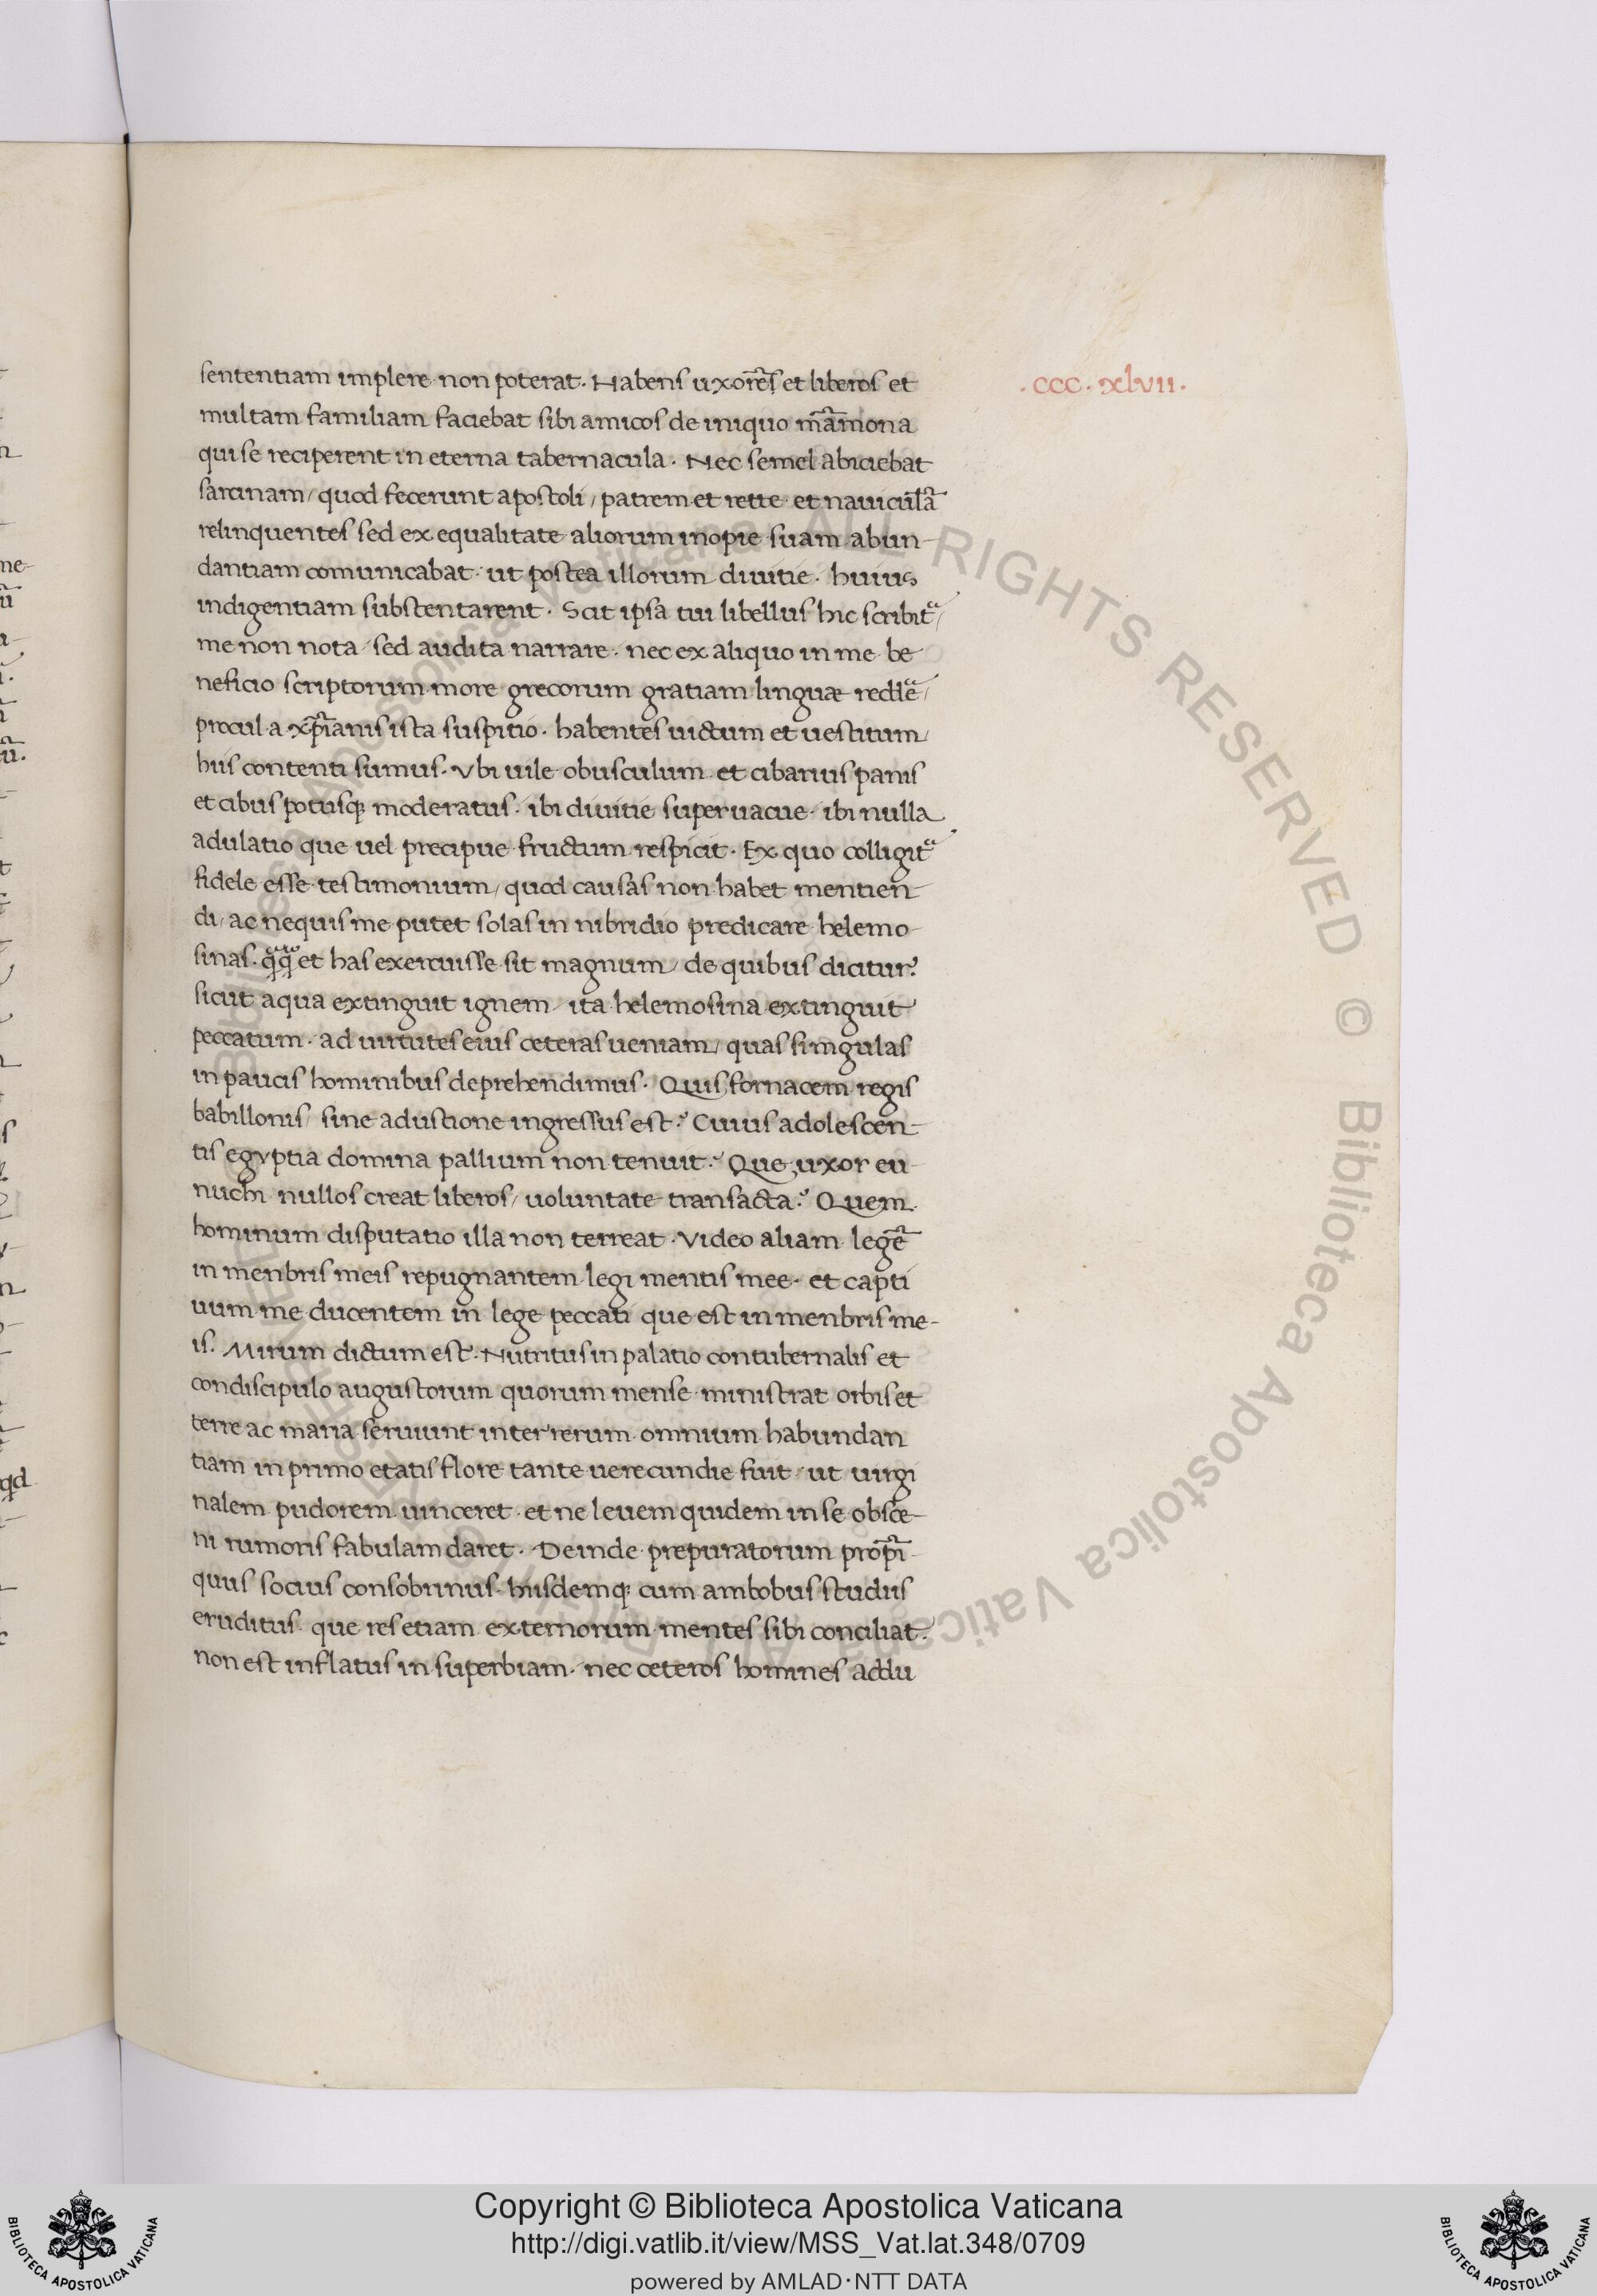 sententiam implere non poterat. Habens uxorēs et liberos et
.ccc.xlvii.
multam familiam faciebat sibi amicos de iniquo māmona
qui se reciperent in eterna tabernacula. Nec semel abiciebat
sarcinam/ quod fecerunt apostoli/ patrem et rette et nauiculā
relinquentes sed ex equalitate aliorum inopie suam abun-
dantiam comunicabat. ut postea illorum diuitie. huius
indigentiam substentarent. Scit ipsa tui libellus hic scribit᷑/
me non nota/ sed audita narrare. nec ex aliquo in me be
neficio scriptorum more grecorum gratiam linguæ
procul a xp̄ianis ista suspitio. habentes uictum et uestitum/
his contenti sumus. Vbi uile obusculum et cibarius panis
et cibus potusq; moderatus. ibi diuitie superuacue. ibi nulla
adulatio que uel precipue fructum respicit. Ex quo colligit᷑
fidele esse testimonium/ quod causas non habet mentien-
di/ ac nequis me putet solas in nibridio predicare helemo-
sinas. et has exercuisse sit magnum/ de quibus dicitur.
sicut aqua extinguit ignem/ ita helemosina extinguit
peccatum. ad uirtutes eius ceteras ueniam/ quas singulas
in paucis hominibus deprehendimus. Quis fornacem regis
babillonis/ sine adustione ingressus est? Cuius adolescen-
tis egyptia domina pallium non tenuit? Que uxor eu-
nuchi nullos creat liberos/ uoluntate transacta? Quem
hominum disputatio illa non terreat. Video aliam legē
in menbris meis repugnantem legi mentis mee. et capti
uum me ducentem in lege peccati que est in menbris me-
is. Mirum dictum est. Nutritus in palatio contubernalis et
condiscipulo augustorum quorum mense ministrat orbis et
terre ac maria seruiunt inter rerum omnium habundan
tiam in primo etatis flore tante uerecundie fuit/ ut uirgi
nalem pudorem uinceret. et ne leuem quidem in se obsce-
ni rumoris fabulam daret. Deinde prepuratorum prop̄i-
quus socius consobrinus. hiisdemq; cum ambobus studiis
eruditus. que res etiam externorum mentes sibi conciliat.
non est inflatus in superbiam. nec ceteros homines addu
Copyright © Biblioteca Apostolica Vaticana
http://digi.vatlib.it/view/MSS_Vat.lat.348/0709
powered by AMLAD·NTT DATA